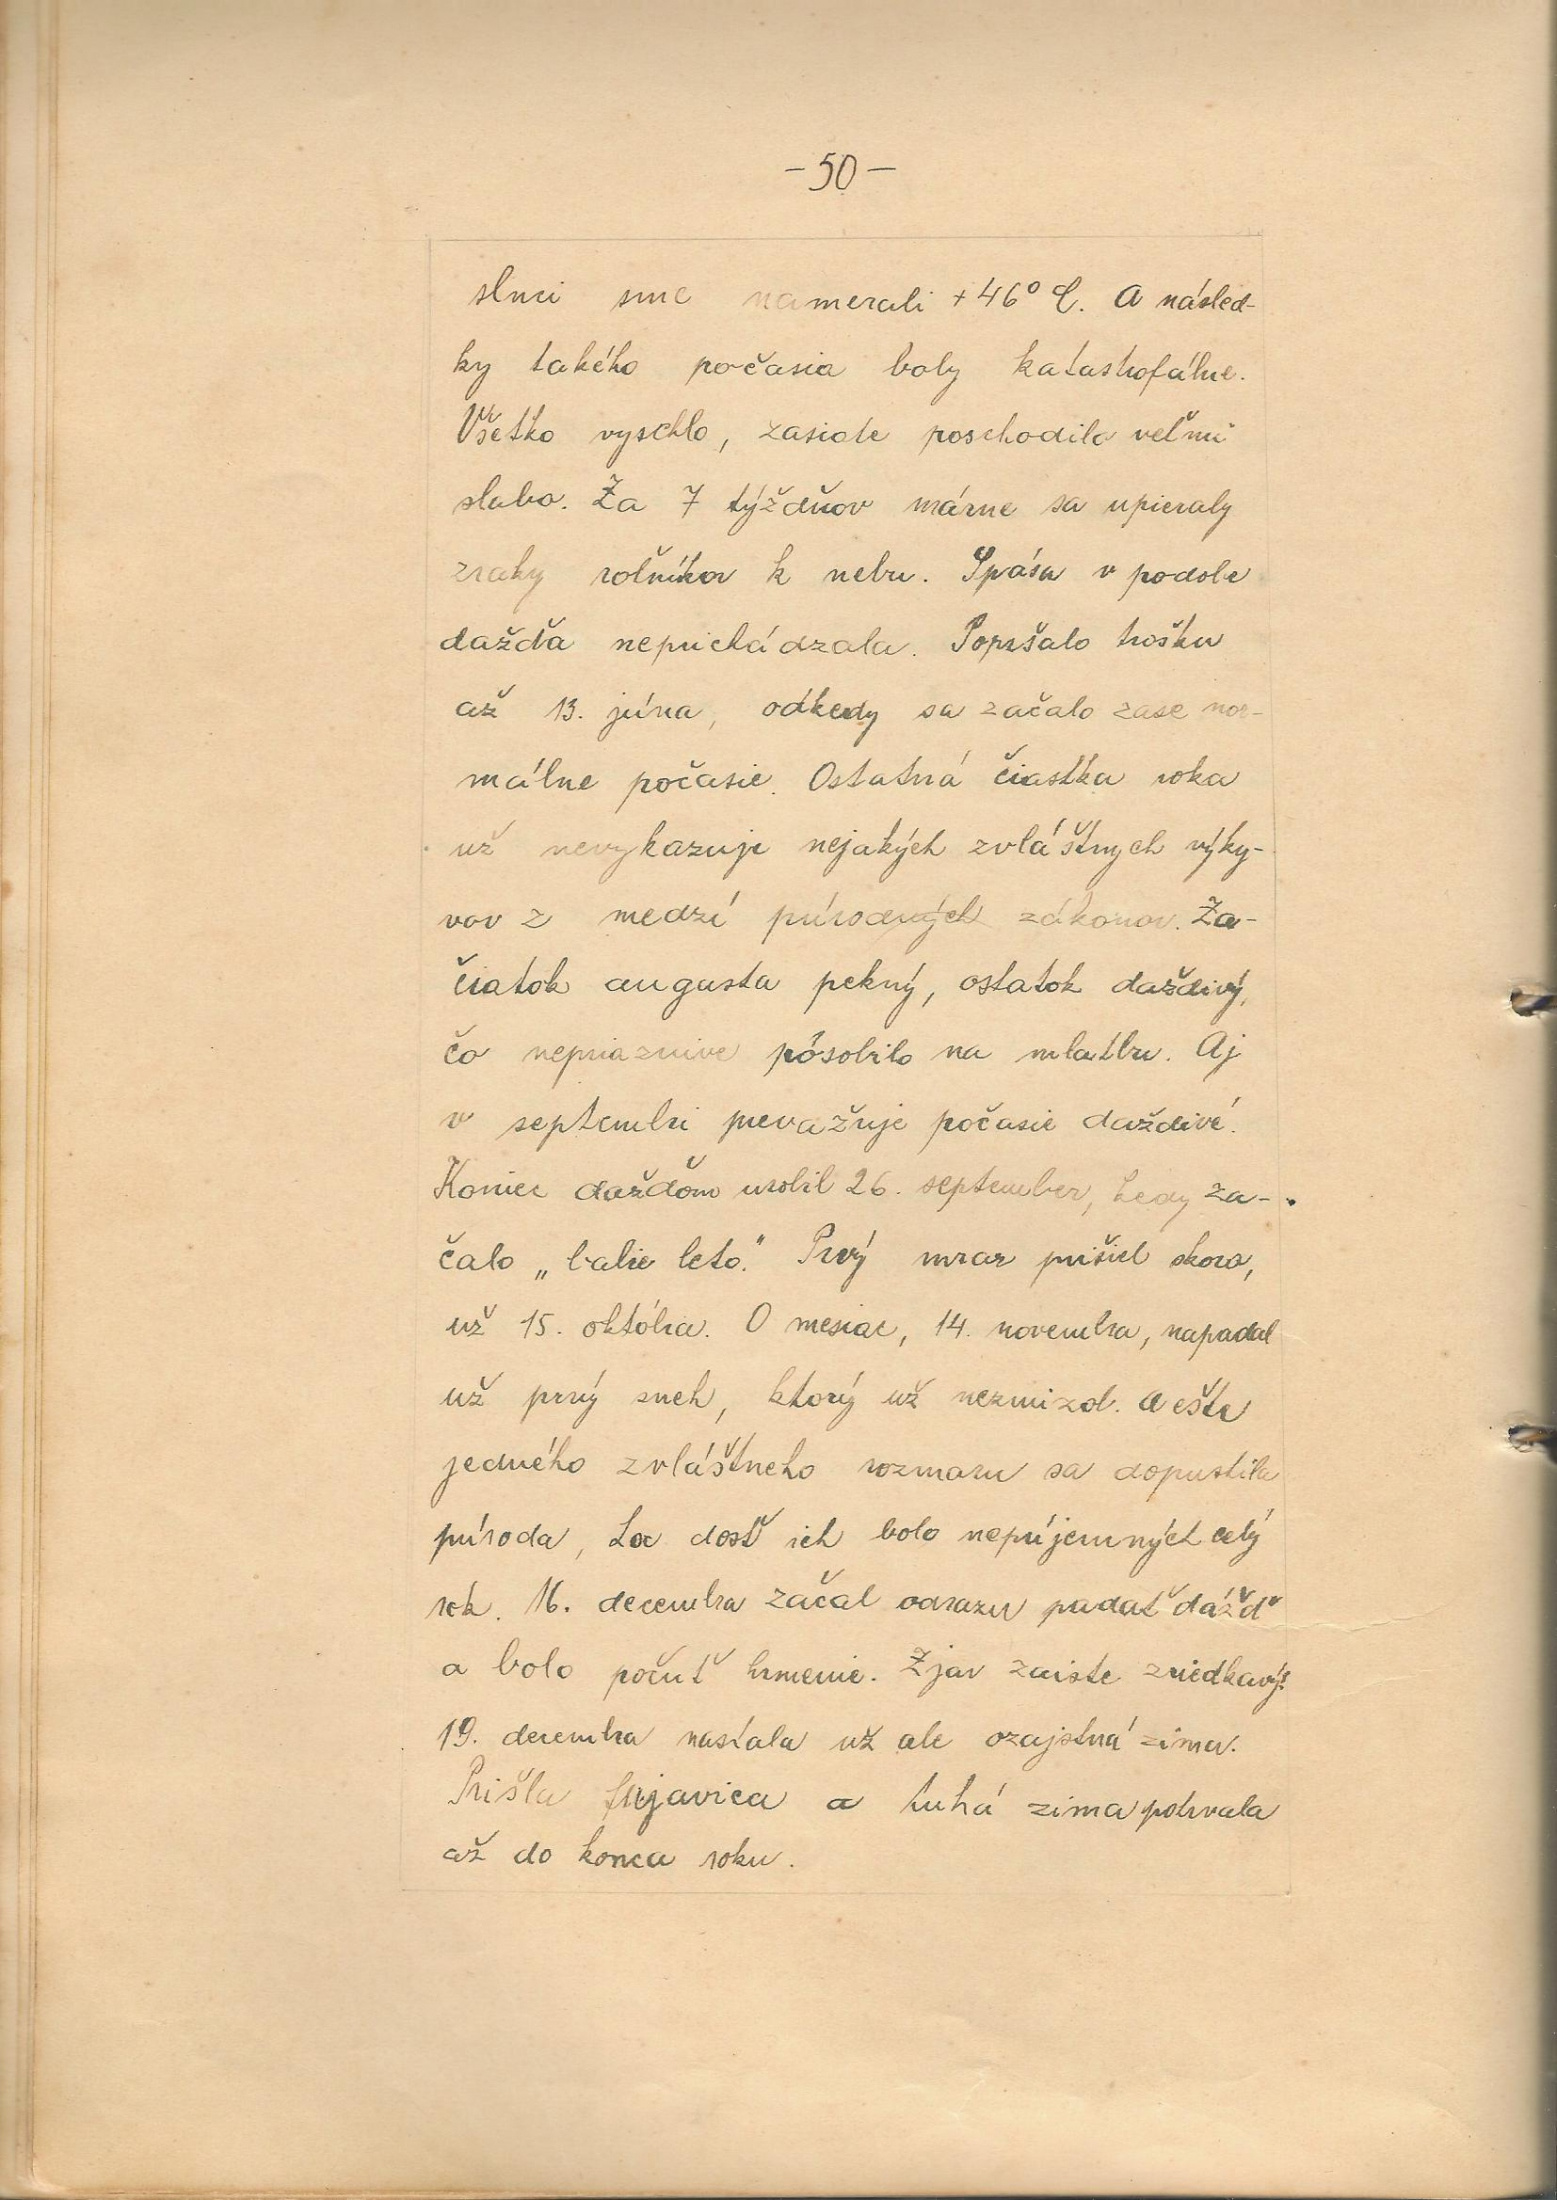 - 50 -
slnci sme namerali + 46° C. A násled-
ky takého počasia boly katastrofálne.
Všetko vyschlo, zasiate poschodilo veľmi
slabo. Za 7 týždňov márne sa upieraly
zraky roľníkov k nebu. Spása v podobe
dažďa neprichádzala. Popršalo trošku
až 13. júna, odkedy sa začalo zase nor-
málne počasie. Ostatná čiastka roka
už nevykazuje nejakých zvláštnych výky-
vov z medzí prírodných zákonov. Za-
čiatok augusta pekný, ostatok daždivý,
čo nepriaznive pôsobilo na mlatbu. Aj
v septembri prevažuje počasie daždivé.
Koniec dažďom urobil 26. september, kedy za-
čalo „babie leto." Prvý mraz prišiel skoro,
už 15. októbra. O mesiac, 14. novembra, napadal
už prvý sneh, ktorý už nezmizol. A ešte
jedného zvláštneho rozmaru sa dopustila
príroda, za dosť ich bolo nepríjemných celý
rok. 16. decembra začal odrazu padať dážď
a bolo počuť hrmenie. Zjav zaiste zriedkavý!
19. decembra nastala už ale ozajstná zima.
Prišla fujavica a tuhá zima potrvala
až do konca roku.